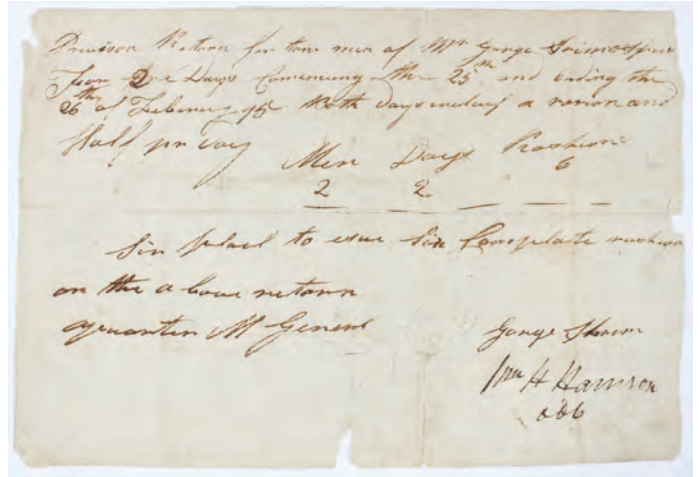 Provison Return for tow men of Mr George
for 2 Days Comencing the 25th and Ending the
26th of Febuary 95 Both days includ a rasion and
Half pr Day Men Days Rashions
2 2 6
Sir plael to esue Six Compleate rashion
on the above return
quarter M General
George Shrim
Wm H Harrison
adc